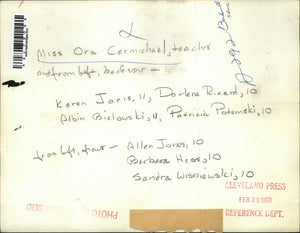 Miss Ora Carmichael, teacher
and from left, backrow -
Karen Jaris, 11, Darlene Ricard, 10
Albin Bielawski, 11, Patricia Potemski, 10
from left, front - Allen Jones, 10
Barbara Hess, 10
Sandra Wisniewski, 10
CLEVELAND PRESS
FEB 25 1959
REFERENCE DEPT.